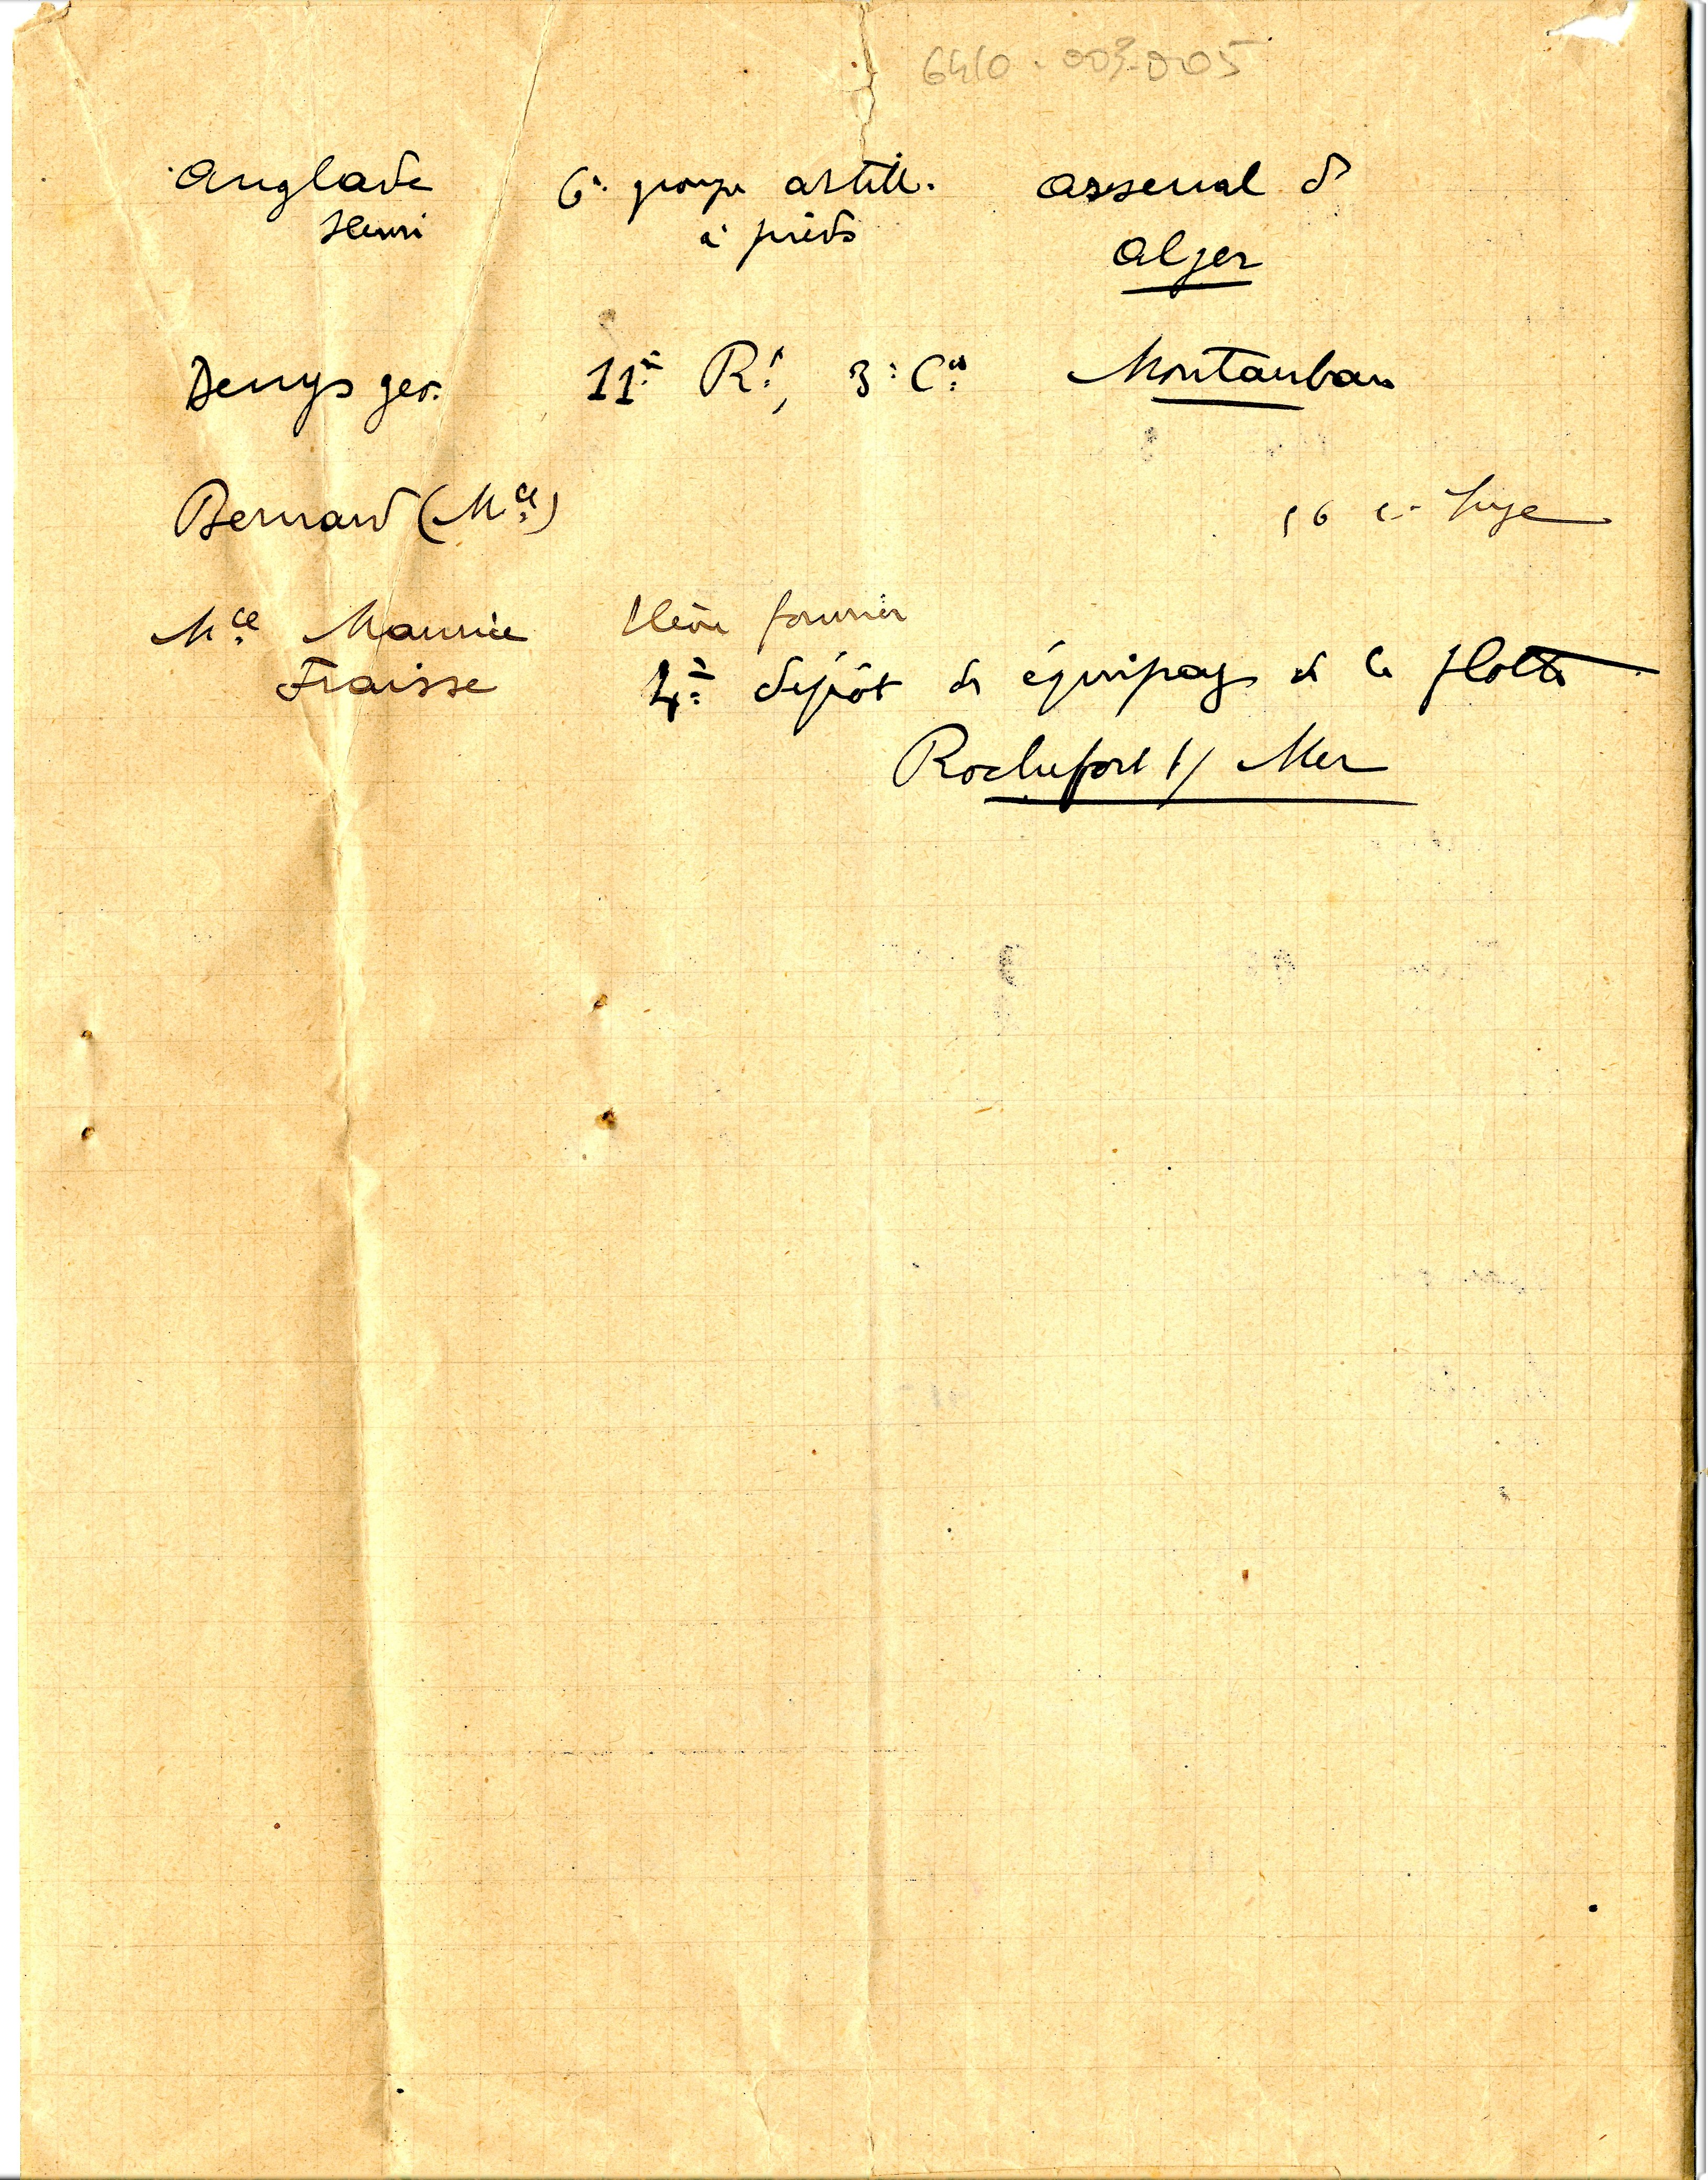 6410.003.005
Anglade 6e groupe artill. arsenal d'
Henri à pieds Alger
Denys ger. 11e Rt, 3e Cie Montauban
Bernard (Mce) 16 e
Mce Maurice Elève fourrier
Fraisse 4e dépôt des équipages de la flotte
Rochefort s/ Mer